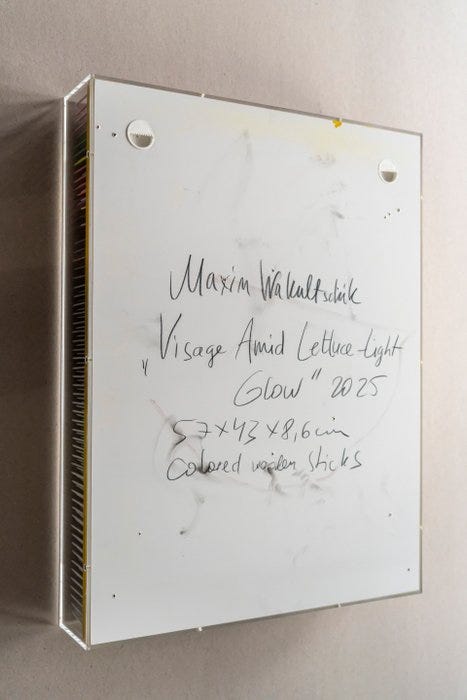 Maxim Wakultschik
„Visage Amid Lettuce-Light
Glow" 2025
57x43x8,6cm
Colored wooden sticks